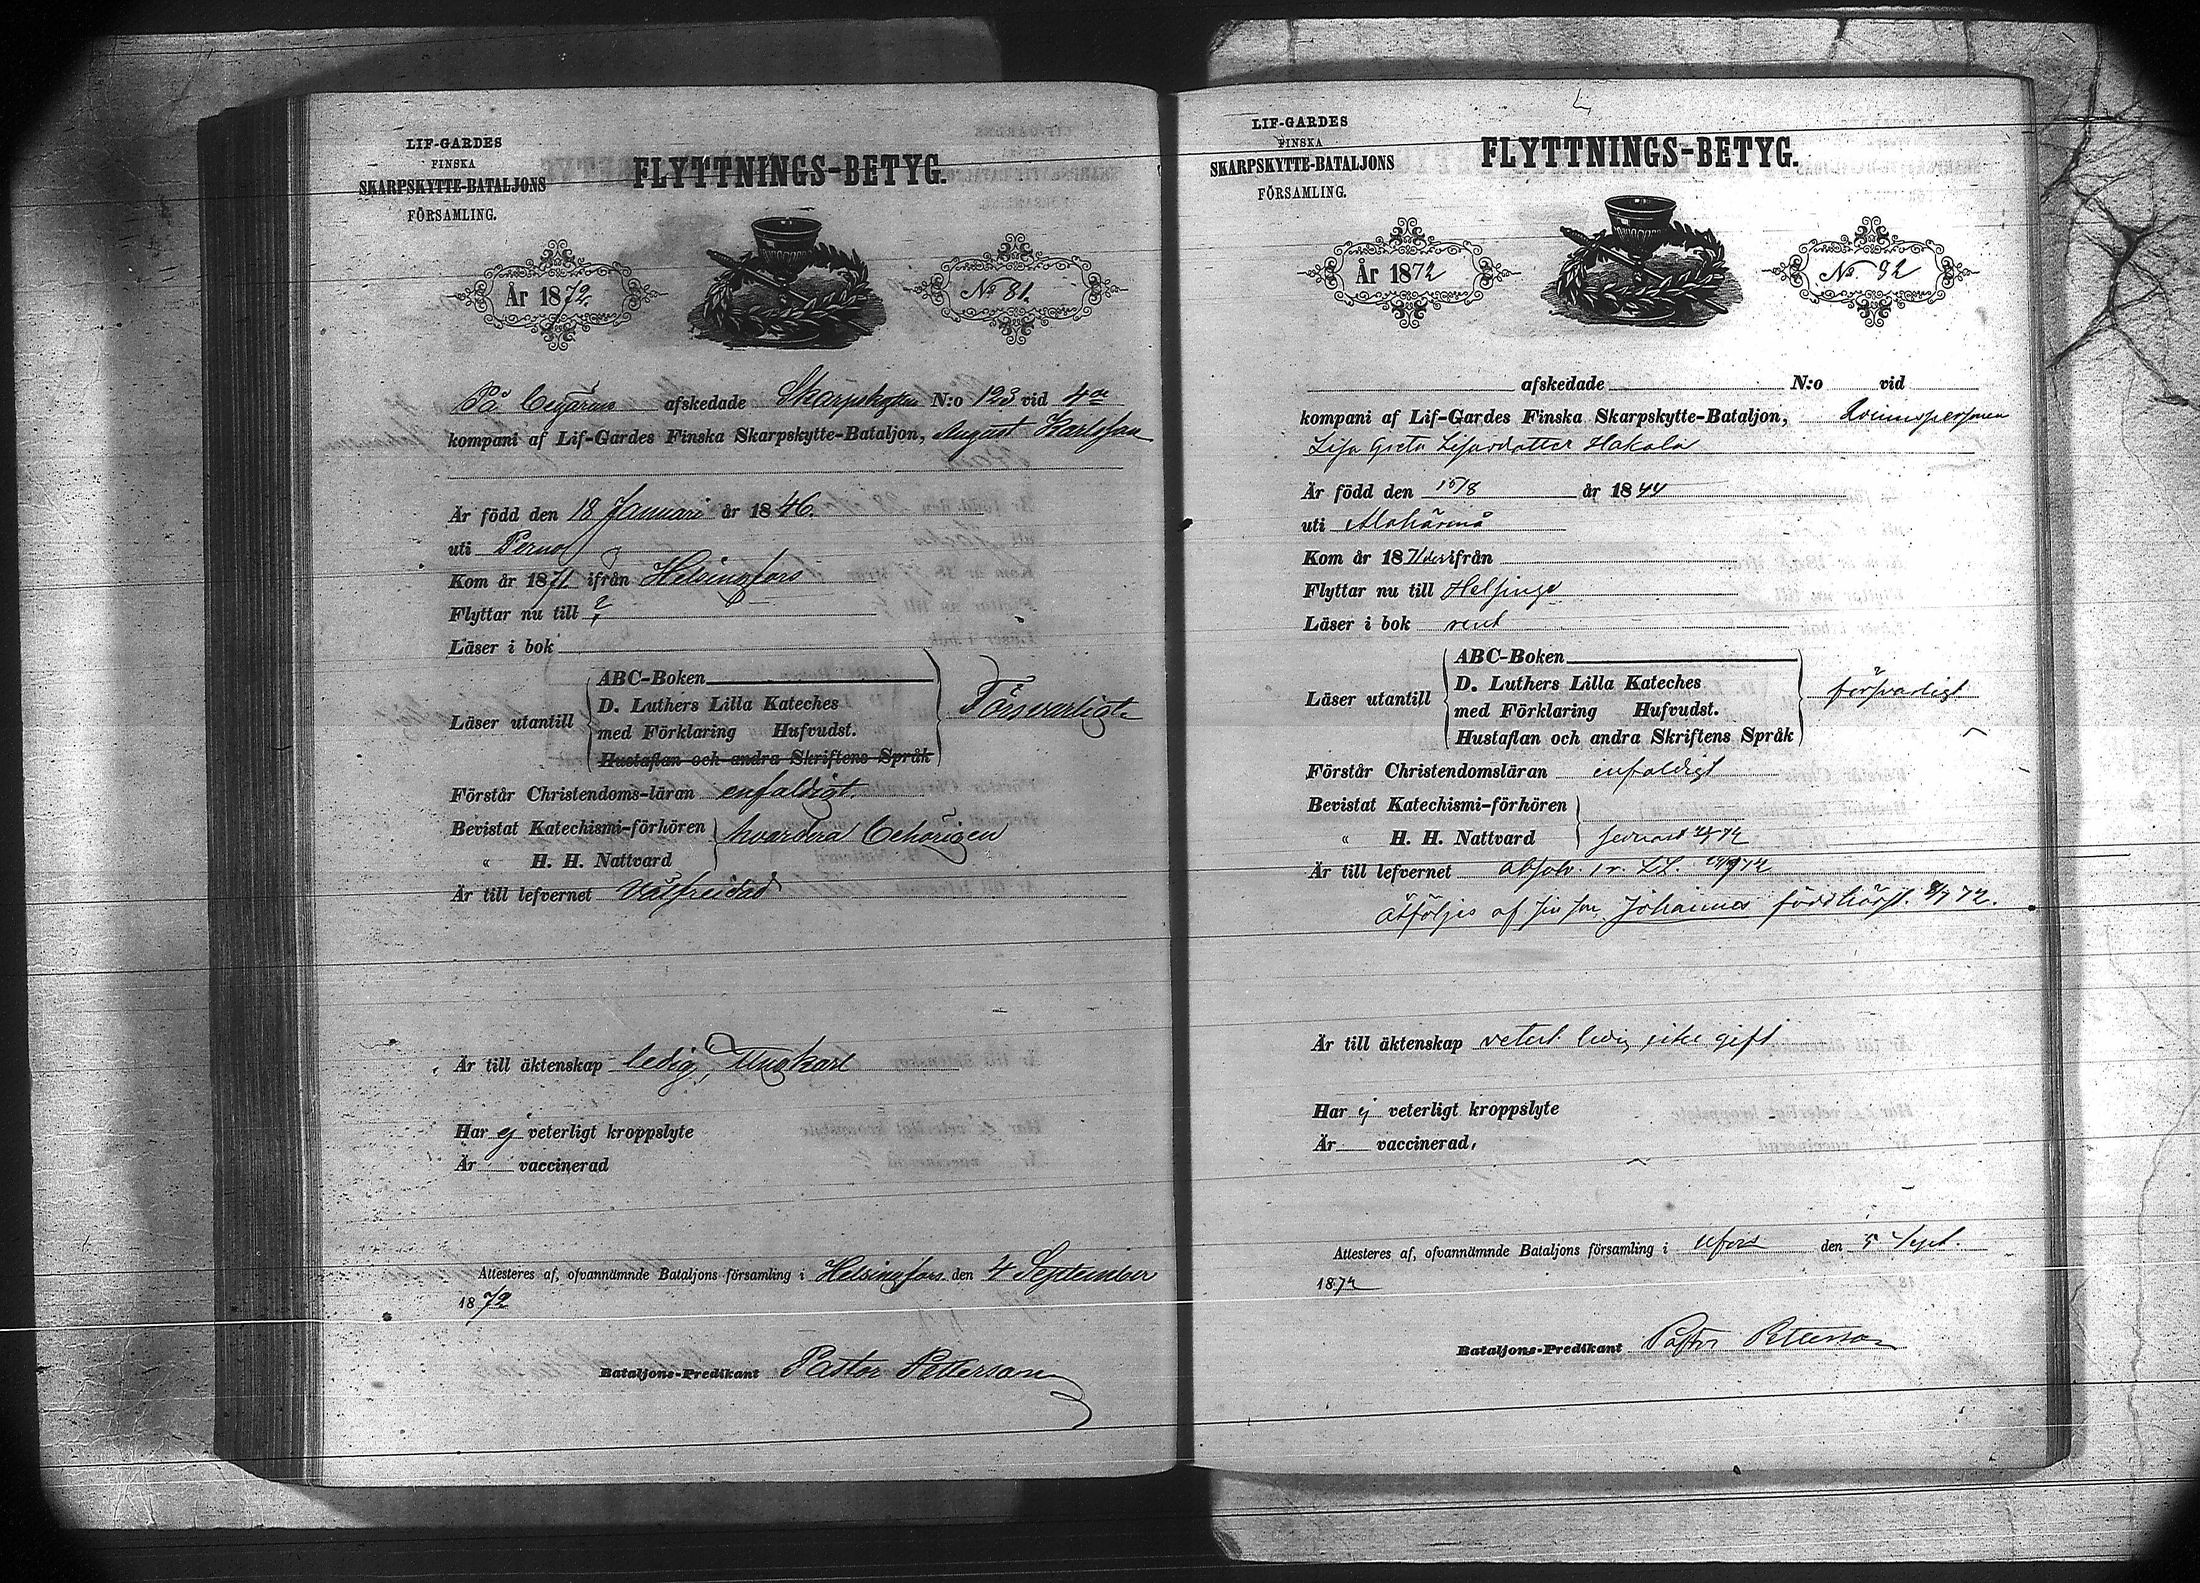 LIF-GARDES
FINSKA
SKARPSKYTTE-BATALJONS
FÖRSAMLING.
FLYTTNINGS-BETYG.
År 1872.
No 81.
På begäran afskedade Skarpskytten N:o 123 vid 4de
kompani af Lif-Gardes Finska Skarpskytte-Bataljon, August Karlsson
Är född den 18 Januari år 1846.
uti Perno
Kom år 1871 ifrån Helsingfors
Flyttar nu till ?
Läser i bok
Läser utantill
ABC-Boken
D. Luthers Lilla Kateches
med Förklaring Hufvudst.
Hustaflan och andra Skriftens Språk
Försvarligt
Förstår Christendoms-läran enfaldigt.
Bevistat Katechismi-förhören
" H. H. Nattvard
hvardera behörigen
Är till lefvernet Välfreidad
Är till äktenskap ledig, Ungkarl
Har ej veterligt kroppslyte
Är vaccinerad
Attesteres af, ofvannämnde Bataljons församling i Helsingfors den 4 September
1872
Bataljons-Predikant Pastor Petterson
LIF-GARDES
FINSKA
SKARPSKYTTE-BATALJONS
FÖRSAMLING.
FLYTTNINGS-BETYG.
År 1872
No 82
afskedade N:o vid
kompani af Lif-Gardes Finska Skarpskytte-Bataljon, Qvinnspersonen
Lisa Greta Lisasdotter Hakala
Är född den 15/8 år 1844
uti Alahärmä
Kom år 1871 ifrån
Flyttar nu till Helsinge
Läser i bok rent
Läser utantill
ABC-Boken
D. Luthers Lilla Kateches
med Förklaring Hufvudst.
Hustaflan och andra Skriftens Språk
försvarligt
Förstår Christendomsläran enfaldigt
Bevistat Katechismi-förhören
" H. H. Nattvard
senast 72
Är till lefvernet absolv. 1 r. LL. 72
Åtföljes af sin son Johannes född härst. 8/7 72.
Är till äktenskap veterl. ledig icke gift
Har ej veterligt kroppslyte
Är vaccinerad,
Attesteres af, ofvannämnde Bataljons församling i Hfors den 5 Sept.
1872
Bataljons-Predikant Pastor Petterson